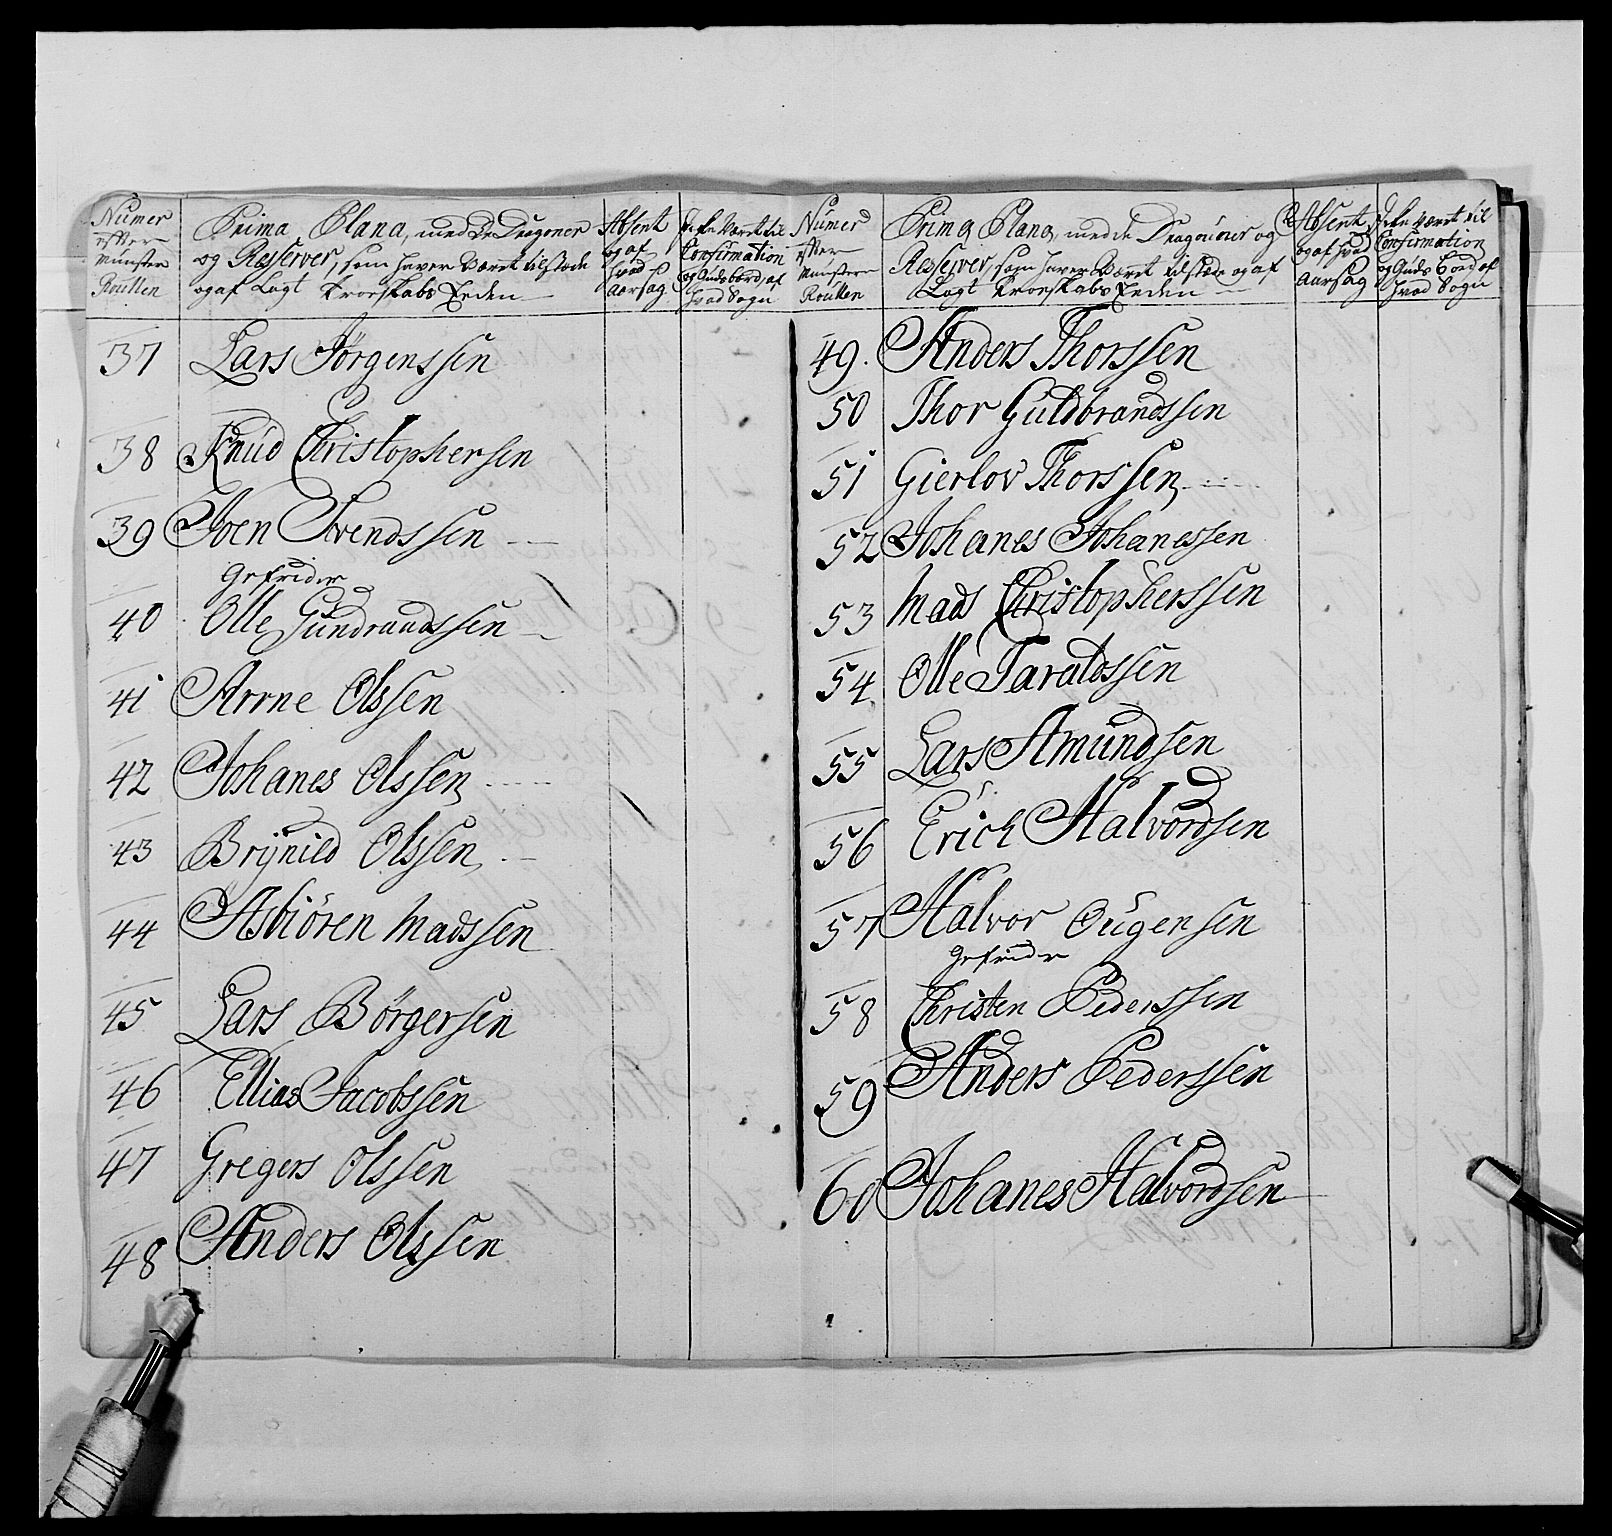 Numer
efter
Munster
Roullen
Prima Plana, med de Dragoner
og Reserver, som haver været tilstæde
og af Lagt Troeskabs Eeden
Absent
og af
hvad
aarsag
Ikke været til
Confirmation
og Guds bord af
hvad Sogn
37 Lars Jørgenssen
38 Knud Christophersen
39 Joen Svendssen
Gefrider
40 Olle Gundrandssen
41 Arrne Olssen
42 Johanes Olssen
43 Brÿnild Olssen
44 Asbiören Madssen
45 Lars Börgersen
46 Ellias Jacobssen
47 Gregers Olssen
48 Anders Olssen
Numer
efter
Munster
Roullen
Prima Plana, med de Dragouner og
Resserver, som haver været tilstæde og af
Lagt Troeskabs Eeden
Absent
og af hvad
Aarsag
Ikke været til
Confirmation
og Guds Bord af
hvad Sogn
49. Anders Thorssen
50 Thor Guldbrandssen
51 Gierlov Thorssen
52 Johanes Johanessen
53 Mads Christopherssen
54 Olle Taraldssen
55 Lars Amundsen
56 Erich Halvordsen
57 Halvor Ougensen
Gefrider
58 Christen Pederssen
59 Anders Pederssen
60 Johanes Halvordsen